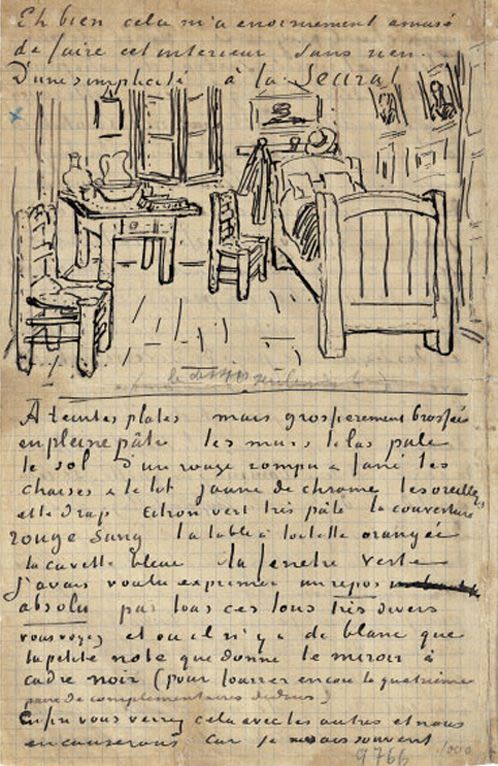 Eh bien cela m'a enormement amusé
de faire cet interieur sans rien.
D'une simplicité à la Seurat
A teintes plates mais grossierement brossées
en pleine pâte les murs lilas pale
le sol d'un rouge rompu & fané les
chaises & le lit jaune de chrome les oreillers
et le drap citron vert très pâle la couverture
rouge sang la table à toilette orangée
la cuvette bleue la fenetre verte
J'avais voulu exprimer un repos
absolu par tous ces tons très divers
vous voyez et où il n'y a de blanc que
la petite note que donne le miroir à
cadre noir (pour fourrer encore la quatrième
paire de complementaires dedans)
Enfin vous verrez cela avec les autres et nous
en causerons car je ne sais souvent
9766